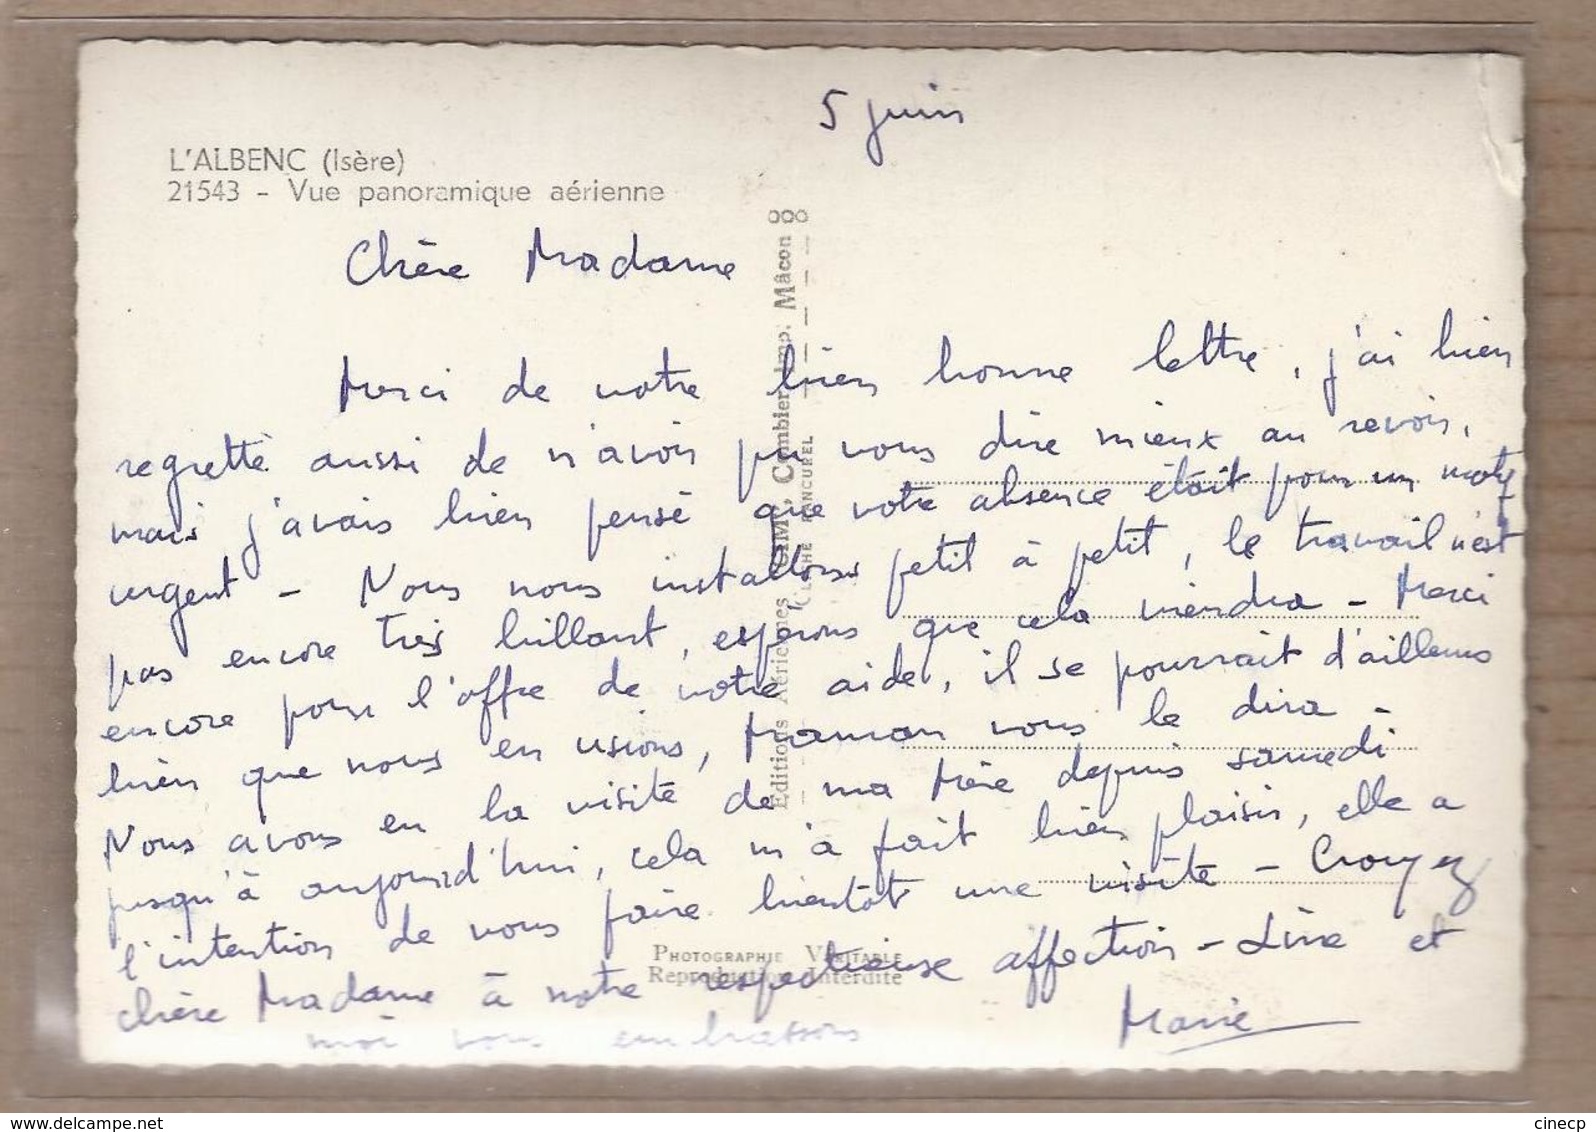 5 juin
L'ALBENC (Isère)
21543 - Vue panoramique aérienne
Chère Madame
Merci de votre bien bonne lettre, j'ai bien
regretté aussi de n'avoir pu vous dire mieux au revoir,
mais j'avais bien pensé que votre absence était pour un motif
urgent - Nous nous installons petit à petit, le travail n'est
pas encore très brillant, espérons que cela viendra - Merci
encore pour l'offre de votre aide, il se pourrait d'ailleurs
bien que nous en usions, Maman vous le dira -
Nous avons eu la visite de ma Mère depuis samedi
jusqu'à aujourd'hui, cela m'a fait bien plaisir, elle a
l'intention de vous faire bientôt une visite - Croyez
chère Madame à notre respectueuse affection - Line et
moi vous embrassons
Marie
Editions Aériennes CIM, Combier Imp. Mâcon
CLICHÉ RANCUREL
PHOTOGRAPHIE VÉRITABLE
Reproduction Interdite
www.delcampe.net
cinecp